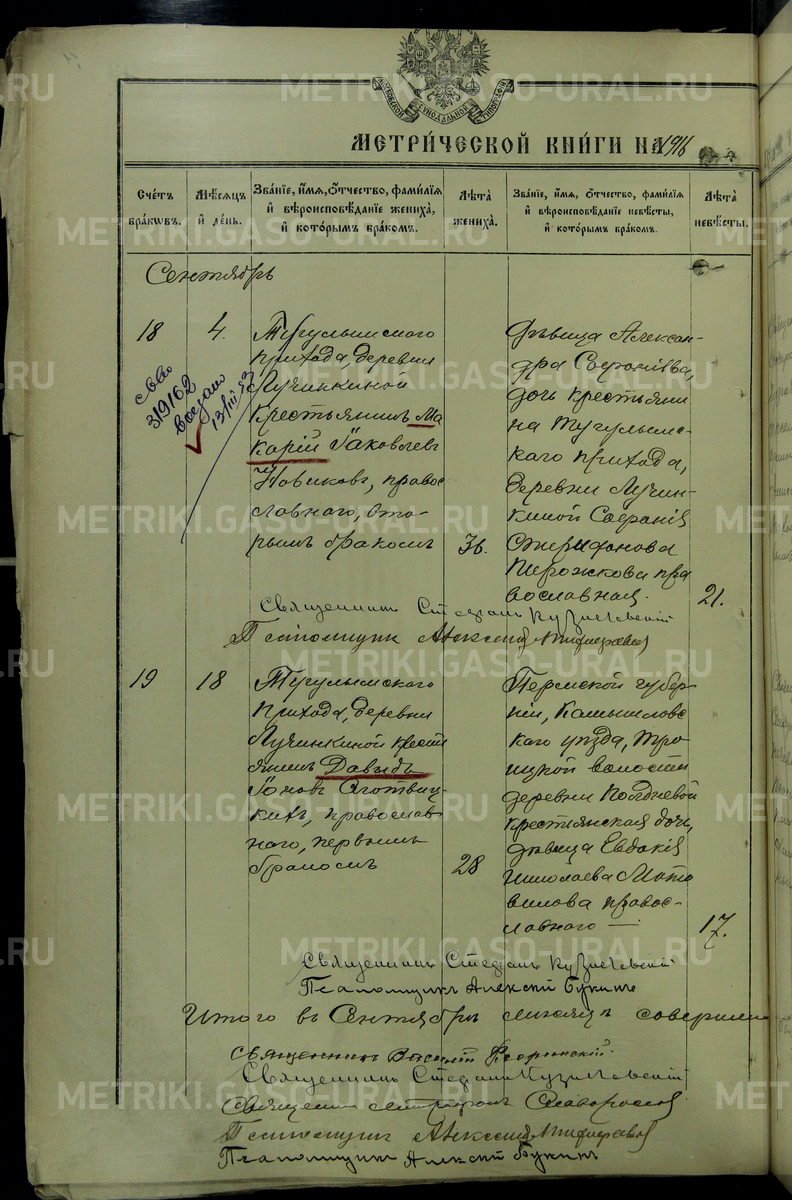 МЕТРИ́ЧЕСКОЙ КНИ́ГИ НА 1916
Сче́тъ бра́ковъ.
Мѣ́сяцъ и҆ де́нь.
Зва́нїе, и҆́мя, ѻ҆́тчество, фами́лїя и҆ вѣроисповѣ́данїе жениха̀, и҆ кото́рымъ бра́комъ.
Лѣ́та жениха̀.
Зва́нїе, и҆́мя, ѻ҆́тчество, фами́лїя и҆ вѣроисповѣ́данїе невѣ́сты, и҆ кото́рымъ бра́комъ.
Лѣ́та невѣ́сты.
Сентябрь
18
4.
Тугулымскаго
прихода, деревни
Лучинкиной
крестьянинъ Ма
карій Іаковлевъ
Новиковъ, правос
славнаго, вто-
рымъ бракомъ
36.
Дѣвица Алексан-
дра Софоніева,
дочь крестьяни
на Тугулымс-
каго прихода,
деревни Лучин-
киной Софонія
Спиридонова
Пирожкова пра
вославная.
21.
319162
выдано
13/III
Священникъ Стефанъ Кузнечевскій
Псаломщикъ Алексій
19
18
Тугулымскаго
прихода, деревни
Лучинкиной крестья
янинъ Давыдъ
Іоновъ
кихъ, православ
наго, первымъ
бракомъ
28
Пермской губер
ніи, Камышловс
каго уѣзда, Тро
ицкой волости
деревни
крестьянская дочь,
дѣвица Евдокія
Николаева
вилова правос-
лавнаго —
17.
Священникъ Стефанъ Кузнечевскій
Псаломщикъ Алексій Букинъ
Итого въ Сентябрѣ мѣсяцѣ совершено
Священникъ Василій Флоринскій
Священникъ Стефанъ Кузнечевскій
Священникъ Митрофанъ Славороссов
Псаломщикъ Алексій
Псаломщикъ Алексій Букинъ
METRIKI.GASO-URAL.RU